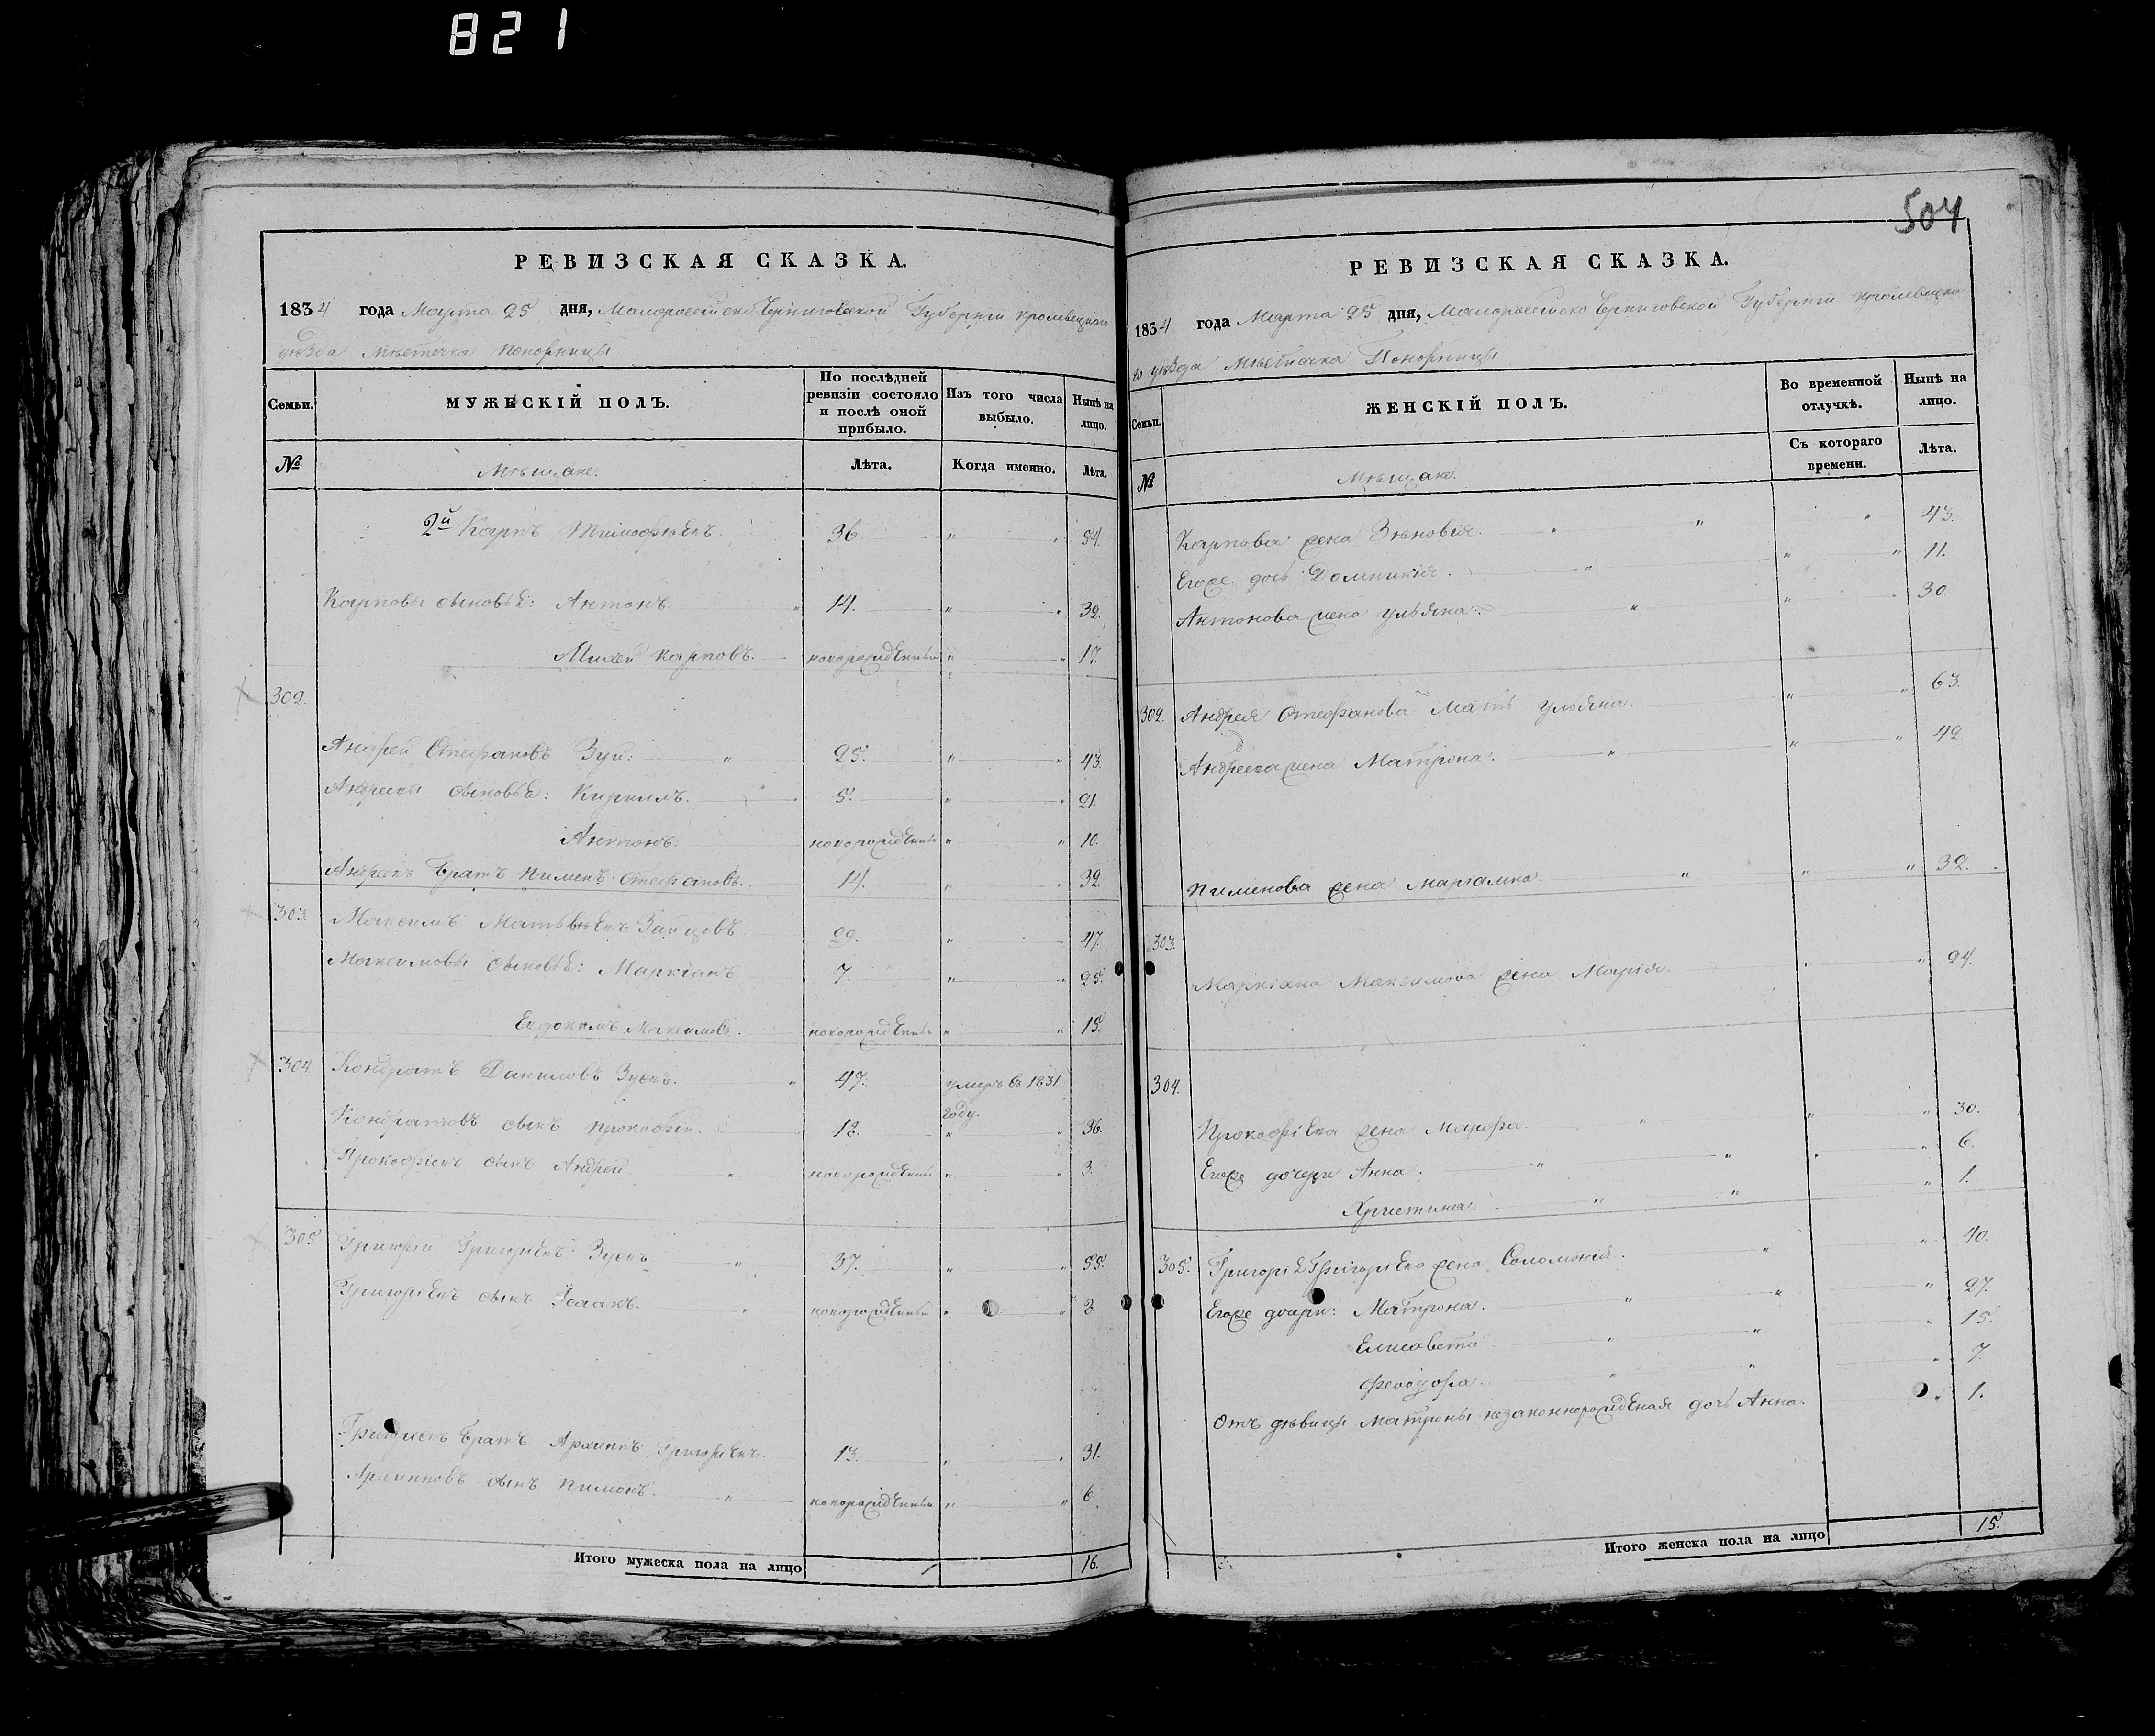 821
504
РЕВИЗСКАЯ СКАЗКА.
1834 года Марта 25 дня, Малоросейско Черниговской Губерніи Кролевецкаго
уезда Мѣстечка Понорницы
Семьи.
МУЖЕСКІЙ ПОЛЪ.
По послѣдней ревизіи состояло и послѣ оной прибыло.
Изъ того числа выбыло.
Нынѣ на лицо.
№
Мѣщане.
Лѣта.
Когда именно.
Лѣта.
2й Карпъ Тимофѣевъ. 36. " " 54.
Карповы сыновьѣ: Антонъ " 14. " " 32.
Михей Карповъ. новорожденный " " 17.
302.
Андрей Стефановъ Зуй: " 25. " " 43.
Андреевы сыновьѣ: Кирилъ. 5. " " 21.
Антонъ. новорожденный " " 10.
Андреевъ братъ Пименъ Стефановъ. 14. " " 32.
303. Максимъ Матьвѣевъ Зайцовъ 29. " " 47.
Максимовы сыновьѣ: Маркіянъ. 7. " " 25.
Евдокимъ Максимовъ. новорожденный " " 15.
304. Кондратъ Даниловъ Зуевъ. " 47. умеръ въ 1831
году.
Кондратовъ сынъ Прокофій. 18. " " 36.
Прокофіевъ сынъ Андрей " новорожденный " " 3.
305. Григорій Григоріевъ Зуевъ " 37. " " 55.
Григоріевъ сынъ Ісаакъ. " новорожденный " " 2.
Григоріевъ братъ Архипъ Григоріевъ. 13. " " 31.
Архиповъ сынъ Пимонъ. " новорожденный " " 6.
Итого мужеска пола на лицо 16.
РЕВИЗСКАЯ СКАЗКА.
1834 года Марта 25 дня, Малоросейско Черниговской Губерніи Кролевецка
го уѣзда Мѣстечка Понорницы
Семьи.
ЖЕНСКІЙ ПОЛЪ.
Во временной отлучкѣ.
Нынѣ на лицо.
№
Мѣщане.
Съ котораго времени.
Лѣта.
Карпова жена Зѣновія. " " " 43.
Егоже дочь Домникія. " " " 11.
Антонова жена Ульяна. " " " 30.
302. Андрея Стефанова Мать Ульяна. " " 63.
Андреева жена Матрона. " " " 42.
Пименова жена Маріамна " " " 32.
303.
Маркіяна Максимова жена Марія. " " 24.
304.
Прокофіева жена Марфа. " " " 30.
Егоже дочери Анна: " " " " 6.
Христина " " " 1.
305. Григоріѣ Григоріева жена Соломонія. " " 40.
Егоже дочери: Матрона. " " " 27.
Елисавета " " " 15.
Феодора. " " " 7.
Отъ дѣвицы Матроны незаконнорожденая дочь Анна. " 1.
Итого женска пола на лицо 15.